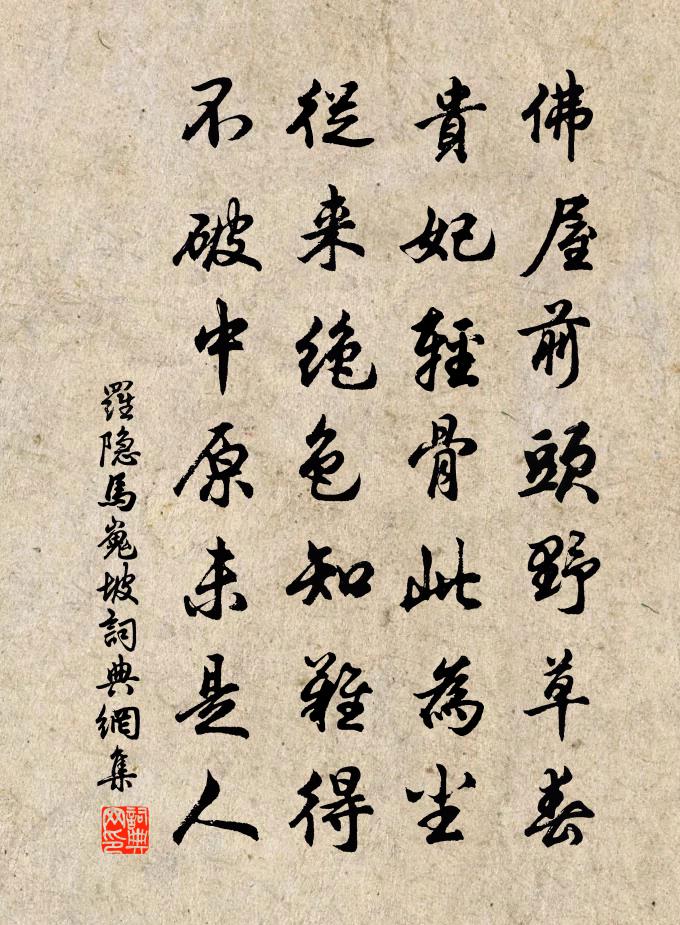 佛屋前頭野草春
貴妃輕骨此為尘
從来绝色知難得
不破中原未是人
羅隐馬嵬坡詞典網集
詞典网印